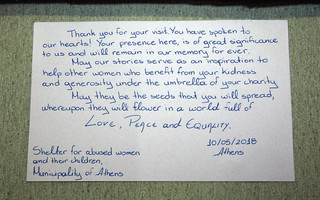 Thank you for your visit. You have spoken to
our hearts! Your presence here, is of great significance
to us and will remain in our memory for ever.
May our stories serve as an inspiration to
help other women who benefit from your kidness
and generosity under the umbrella of your charity
May they be the seeds that you will spread,
whereupon they will flower in a world full of
LOVE, PEACE and EQUALITY.
10/05/2018
Shelter for abused women Athens
and their children,
Municipality of Athens